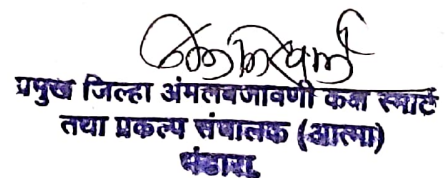 प्रमुख जिल्हा अंमलबजावणी कक्ष स्मार्ट
तथा प्रकल्प संचालक (आत्मा)
भंडारा